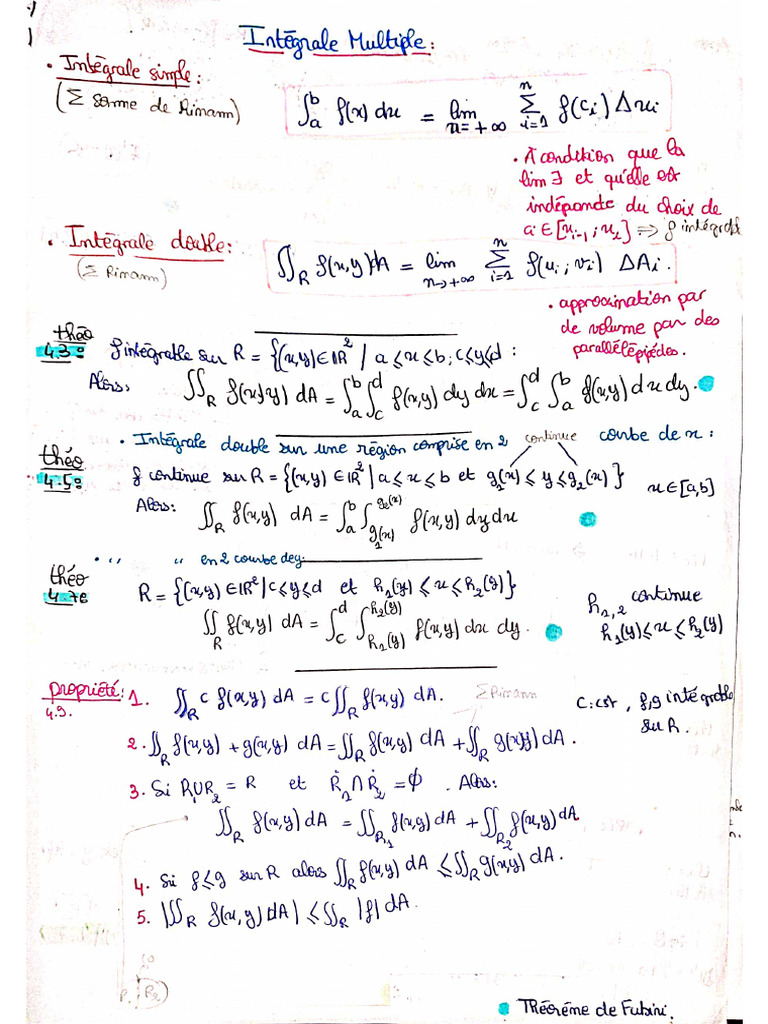 Intégrale Multiple:
• Intégrale simple:
(Σ somme de Rimann)
∫_a^b f(x) dx = lim_{n=+∞} Σ_{i=1}^n f(c_i) Δx_i
• A condition que la
lim ∃ et qu'elle est
indépende du choix de
ci ∈ [x_{i-1} ; x_i] ⇒ f intégrable
• Intégrale double:
(Σ Rimann)
∬_R f(x,y) dA = lim_{n→+∞} Σ_{i=1}^n f(u_i ; v_i) ΔA_i.
• approximation par
de volume par des
parallélépipèdes.
théo
4.3:
f intégrable sur R = {(x,y) ∈ IR² / a ≤ x ≤ b ; c ≤ y ≤ d :
Alors: ∬_R f(x,y) dA = ∫_a^b ∫_c^d f(x,y) dy dx = ∫_c^d ∫_a^b f(x,y) dx dy.
• Intégrale double sur une région comprise en 2 continue courbe de x :
théo
4.5:
f continue sur R = {(x,y) ∈ IR² / a ≤ x ≤ b et g_1(x) ≤ y ≤ g_2(x)} x ∈ [a,b]
Alors: ∬_R f(x,y) dA = ∫_a^b ∫_{g_1(x)}^{g_2(x)} f(x,y) dy dx
• " " en 2 courbe de y:
théo
4.7:
R = {(x,y) ∈ IR² / c ≤ y ≤ d et h_1(y) ≤ x ≤ h_2(y)}
h_{1,2} continue
h_1(y) ≤ x ≤ h_2(y)
∬_R f(x,y) dA = ∫_c^d ∫_{h_1(y)}^{h_2(y)} f(x,y) dx dy.
propriété:
4.9.
1. ∬_R c f(x,y) dA = c ∬_R f(x,y) dA. Σ Rimann
C: cst , f,g intégrable
sur R.
2. ∬_R f(x,y) + g(x,y) dA = ∬_R f(x,y) dA + ∬_R g(x,y) dA.
3. Si R_1 ∪ R_2 = R et Ṙ_1 ∩ Ṙ_2 = ϕ . Alors:
∬_R f(x,y) dA = ∬_{R_1} f(x,y) dA + ∬_{R_2} f(x,y) dA
4. Si f ≤ g sur R alors ∬_R f(x,y) dA ≤ ∬_R g(x,y) dA.
5. |∬_R f(x,y) dA| ≤ ∬_R |f| dA.
Théorème de Fubini.